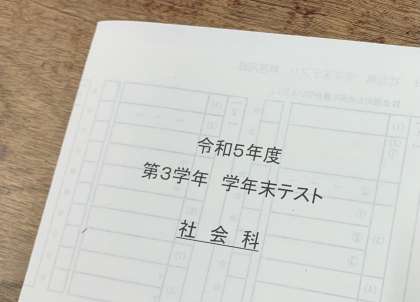 令和5年度
第3学年 学年末テスト
社会科